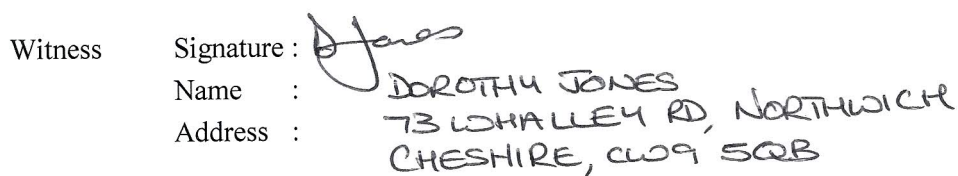 Witness Signature : D Jones
Name : DOROTHY JONES
Address : 73 WHALLEY RD, NORTHWICH
CHESHIRE, CW9 5QB